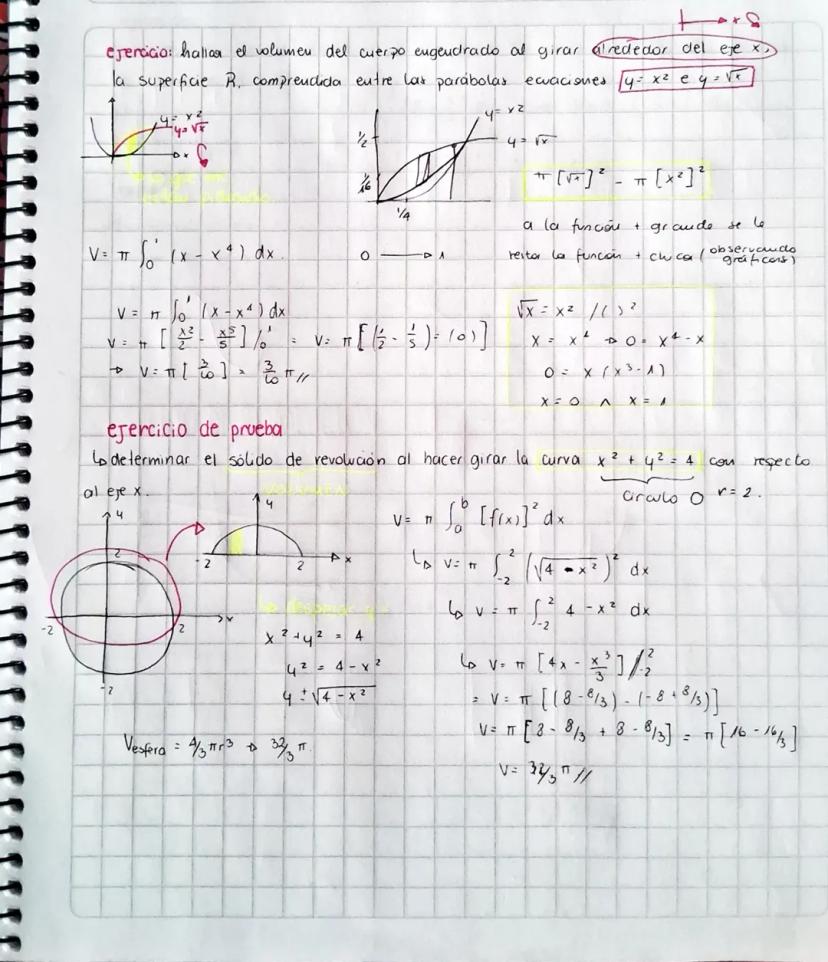 → x
ejercicio: hallar el volumen del cuerpo engendrado al girar alrededor del eje x,
la superficie R, comprendida entre las parábolas ecuaciones y = x² e y = √x
y = x²
y = √x
x
y = x²
y = √x
1/2
1/16
1/4
π [√x]² - π [x²]²
a la función + grande se le
restar la función + chica (observando
gráficos)
V = π ∫₀¹ (x - x⁴) dx.
0 → 1
V = π ∫₀¹ (x - x⁴) dx
V = π [x²/2 - x⁵/5] /₀¹ = V = π [(1/2 - 1/5) - (0)]
→ V = π [3/10] = 3/10 π //
√x = x² /( )²
x = x⁴ → 0 = x⁴ - x
0 = x (x³ - 1)
x = 0 ∧ x = 1
ejercicio de prueba
↳ determinar el sólido de revolución al hacer girar la curva x² + y² = 4 con respecto
al eje x.
circulo O r = 2.
y
2
-2
2
x
-2
y
-2
2
x
V = π ∫ₐᵇ [f(x)]² dx
↳ V = π ∫₋₂² (√4 - x²)² dx
↳ V = π ∫₋₂² 4 - x² dx
↳ despejar y =
x² + y² = 4
y² = 4 - x²
y ± √4 - x²
↳ V = π [4x - x³/3] /₋₂²
= V = π [(8 - 8/3) - (-8 + 8/3)]
V = π [8 - 8/3 + 8 - 8/3] = π [16 - 16/3]
V = 32/3 π //
Vesfera = 4/3 π r³ → 32/3 π.